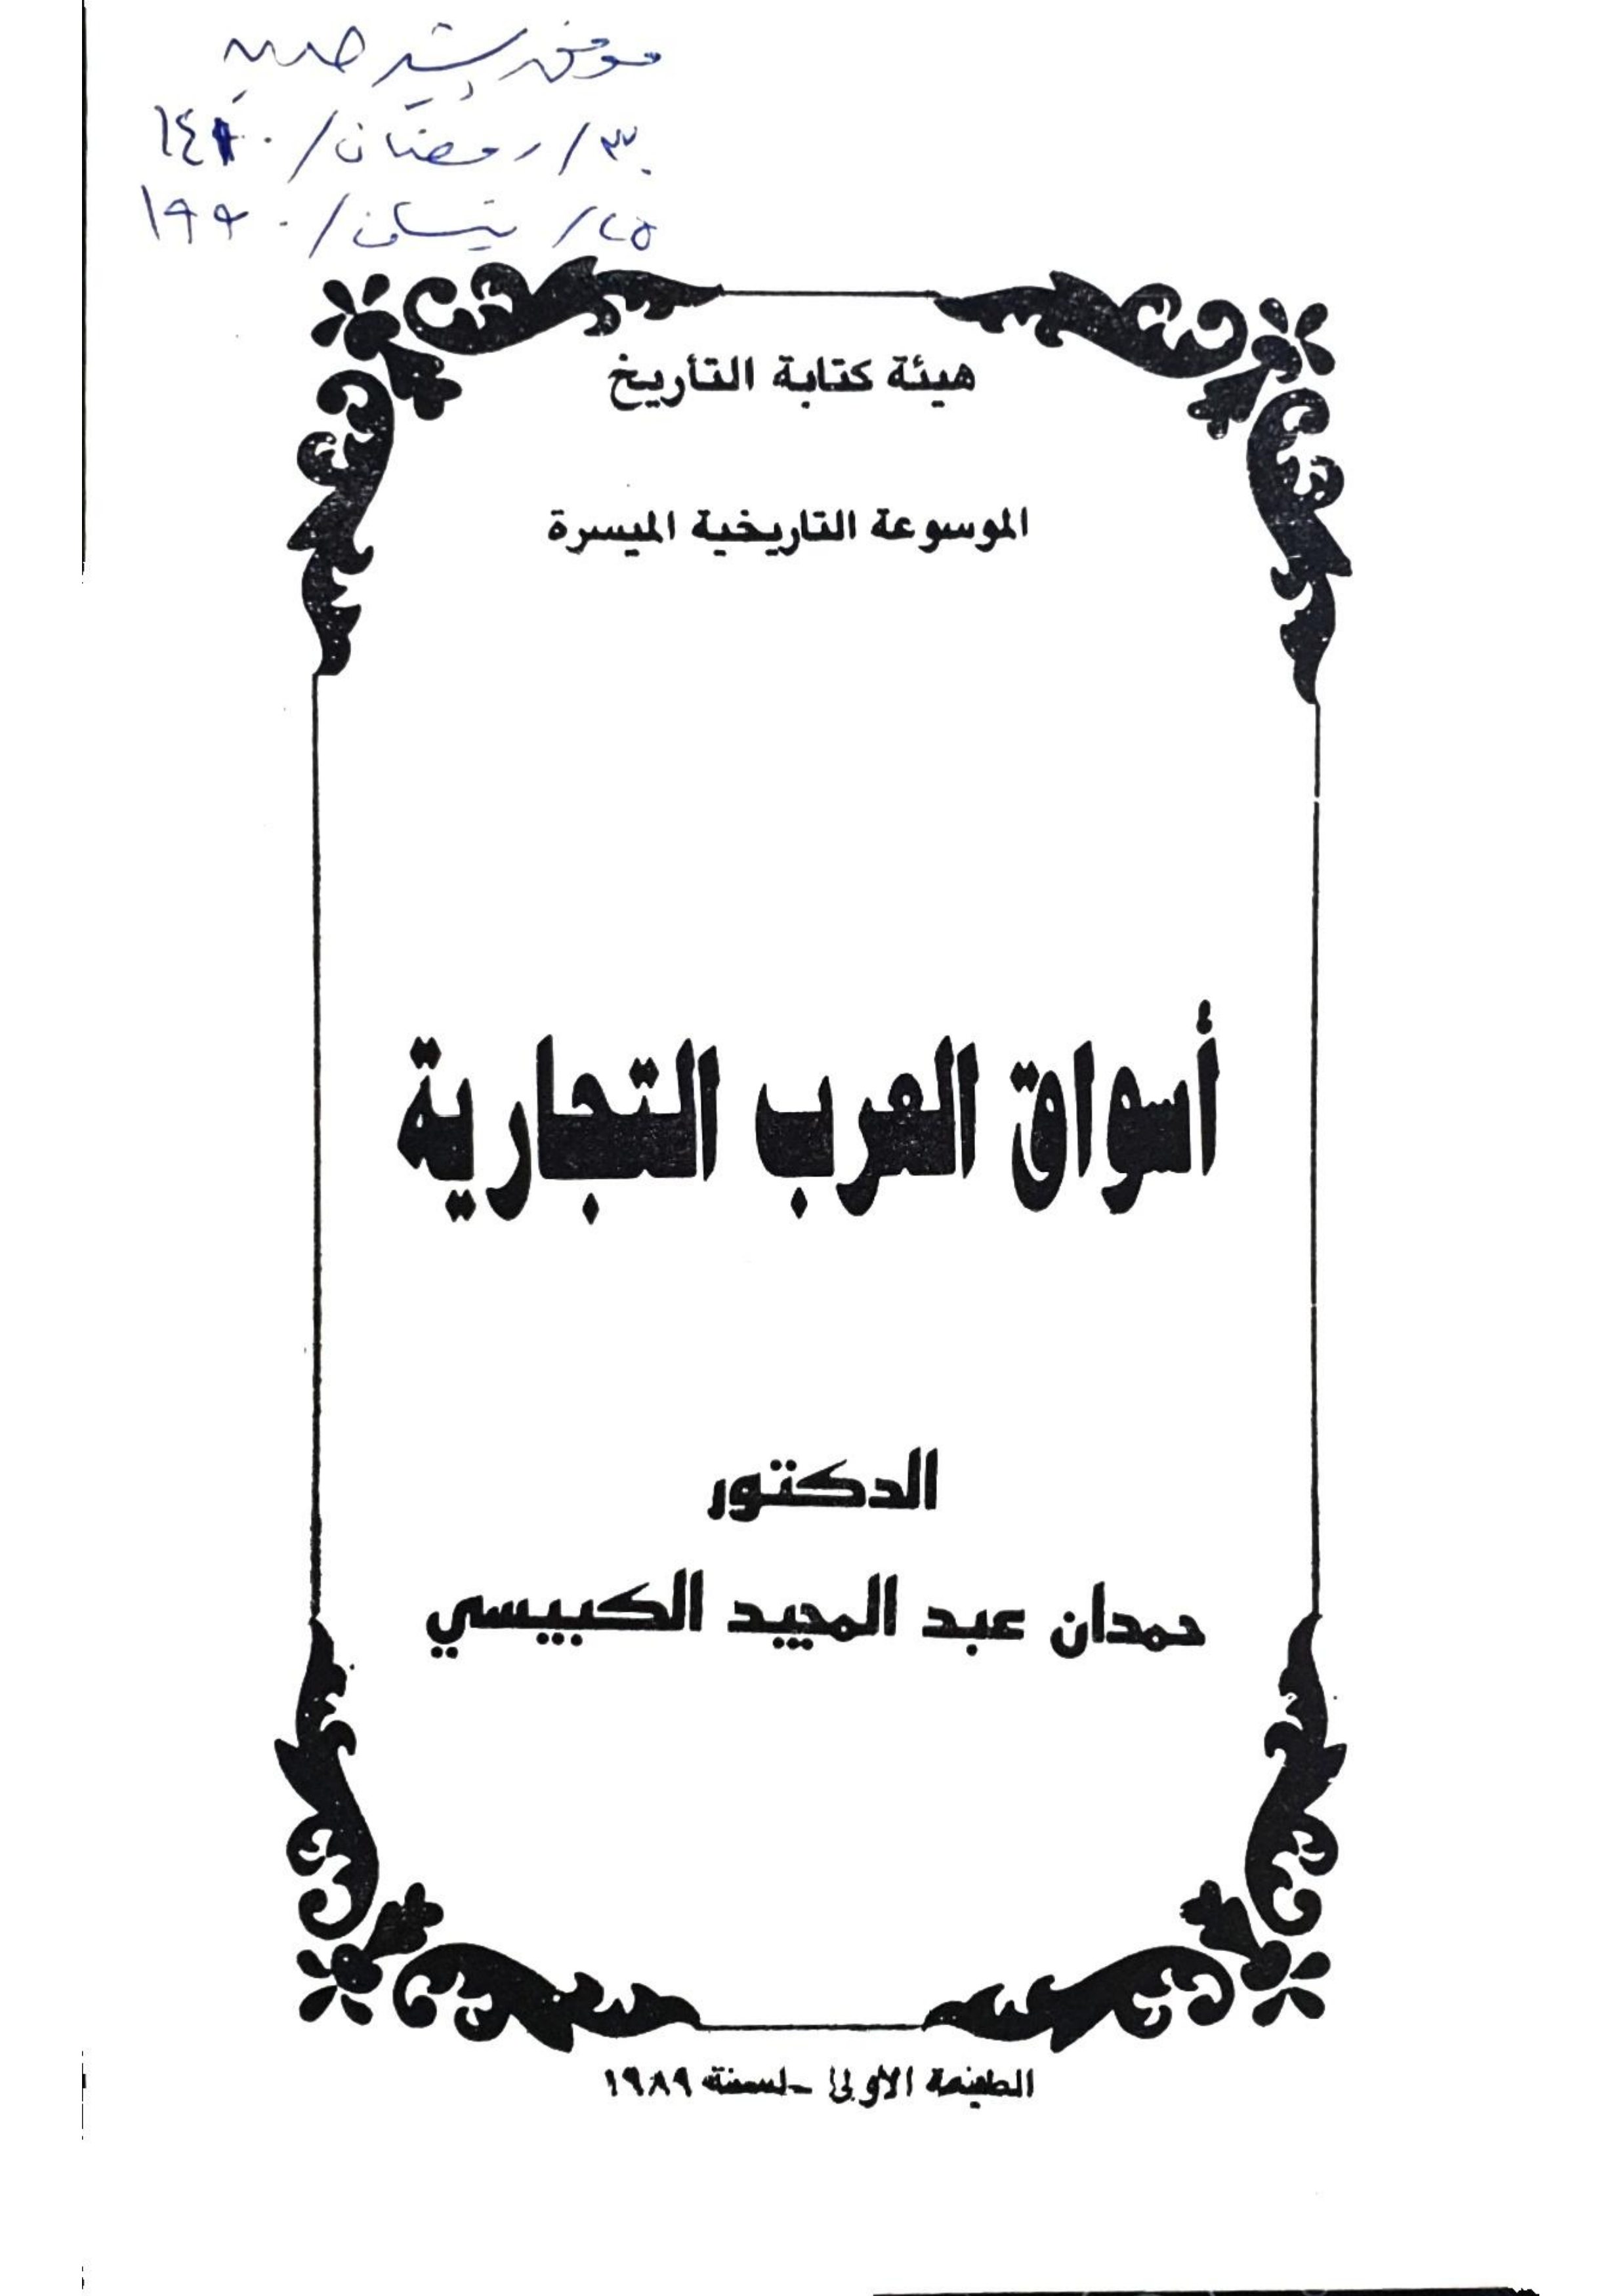 موفق رشيد حديد
٣٠/ رمضان/ ١٤١٠
٢٥/ نيسان/ ١٩٩٠
هيئة كتابة التأريخ
الموسوعة التاريخية الميسرة
أسواق العرب التجارية
الدكتور
حمدان عبد المجيد الكبيسي
الطبعة الأولى - لسنة ١٩٨٩